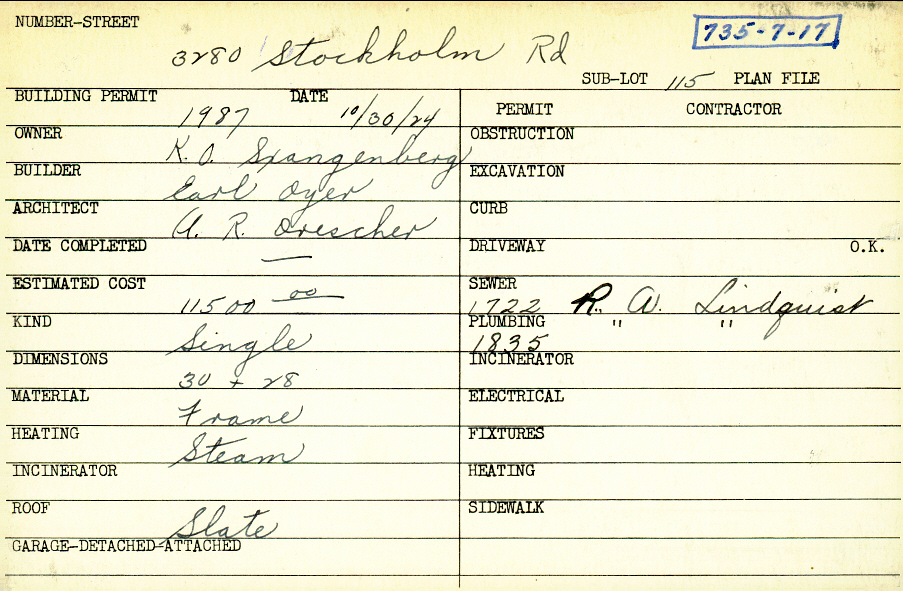 NUMBER-STREET
735-7-17
3280 Stockholm Rd
SUB-LOT 115 PLAN FILE
BUILDING PERMIT 1987 DATE 10/30/24
PERMIT CONTRACTOR
OWNER K. O. Spangenberg
OBSTRUCTION
BUILDER Earl Oyer
EXCAVATION
ARCHITECT A. R. Drescher
CURB
DATE COMPLETED —
DRIVEWAY O.K.
ESTIMATED COST 11500 00
SEWER 1722 R. A. Lindquist
KIND Single
PLUMBING 1835 " "
DIMENSIONS 30 + 28
INCINERATOR
MATERIAL Frame
ELECTRICAL
HEATING Steam
FIXTURES
INCINERATOR
HEATING
ROOF Slate
SIDEWALK
GARAGE-DETACHED-ATTACHED